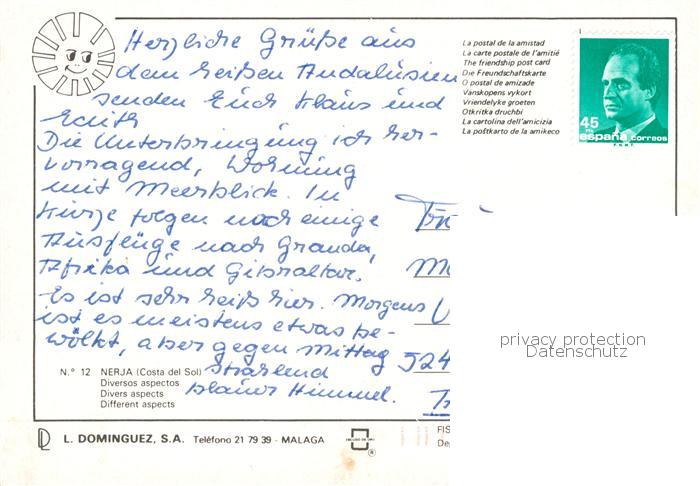 Herzliche Grüße aus
dem heißen Andalusien
senden Euch Klaus und
Edith
Die Unterbringung ist her-
vorragend, Wohnung
mit Meerblick. In
Kürze folgen noch einige
Ausflüge nach Granada,
Afrika und Gibraltar.
Es ist sehr heiß hier. Morgens
ist es meistens etwas be-
wölkt, aber gegen Mittag
strahlend
blauer Himmel.
La postal de la amistad
La carte postale de l'amitié
The friendship post card
Die Freundschaftskarte
O postal de amizade
Vanskopens vykort
Vriendelyke groeten
Otkritka druchbi
La cartolina dell'amicizia
La poŝtkarto de la amikeco
45
españa correos
F.N.M.T.
524
privacy protection
Datenschutz
N.° 12 NERJA (Costa del Sol)
Diversos aspectos
Divers aspects
Different aspects
L. DOMINGUEZ, S.A. Teléfono 21 79 39 - MALAGA
FIS
De